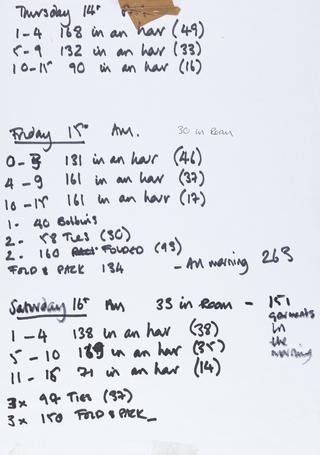 Thursday 14th
1-4 168 in an hour (49)
5-9 132 in an hour (33)
10-15 90 in an hour (16)
Friday 15th AM. 30 in Room
0-3 131 in an hour (46)
4-9 161 in an hour (37)
10-15 161 in an hour (17)
1- 40 Bobbins
2- 58 Ties (30)
2. 160 FOLDED (93)
FOLD & PACK 134 - All morning 263
Saturday 16th AM 33 in Room - 151
garments
in
the
morning
1-4 138 in an hour (38)
5-10 169 in an hour (35)
11-15 71 in an hour (14)
3x 97 Ties (37)
3x 150 FOLD & PACK